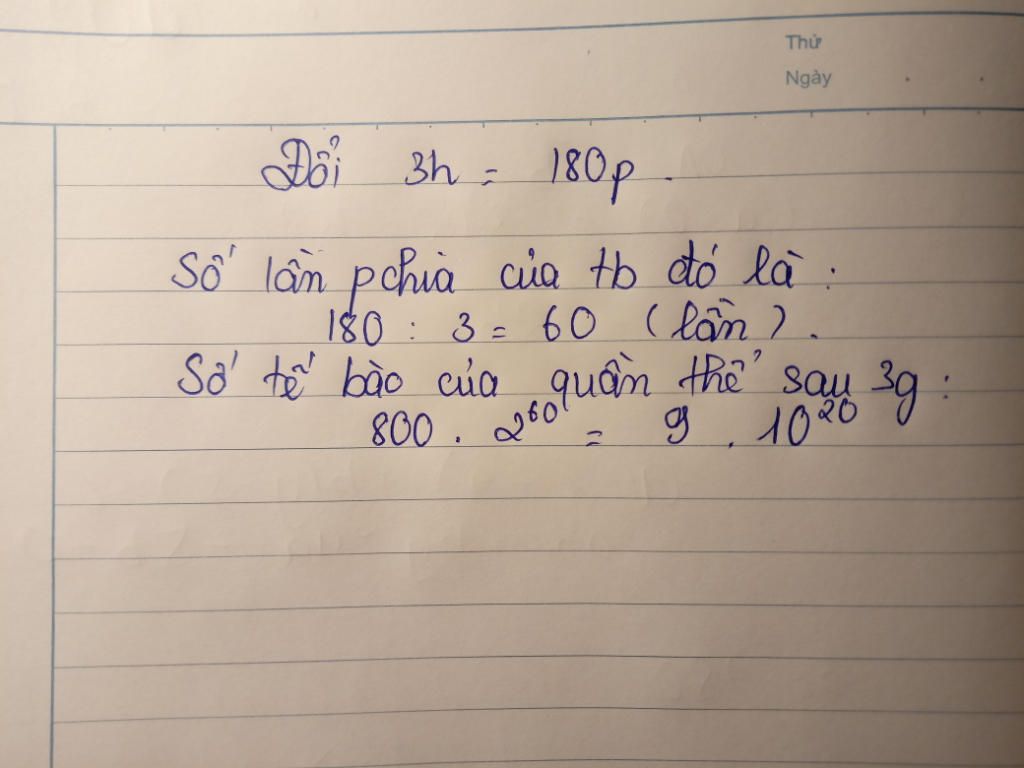 Thứ
Ngày
Đổi 3h = 180p.
Số lần pchia của tb đó là :
180 : 3 = 60 (lần).
Số tế bào của quần thể sau 3g :
800 . 2⁶⁰ = 9 . 10²⁰